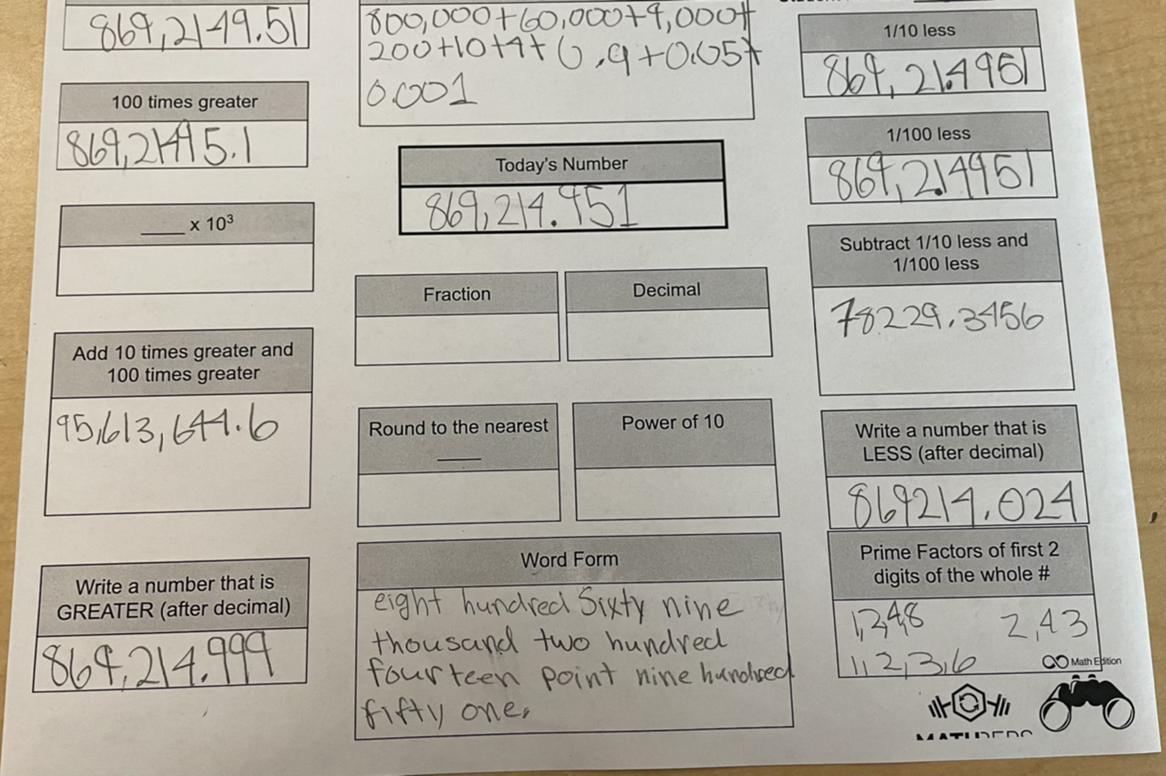 869,2149.51
800,000+60,000+9,000+
200+10+4+0.9+0.05+
0.001
1/10 less
869,21.4951
100 times greater
869,21495.1
1/100 less
869,2.14951
Today's Number
869,214.951
____ x 10³
Subtract 1/10 less and
1/100 less
78229.3456
Fraction
Decimal
Add 10 times greater and
100 times greater
95,613,644.6
Round to the nearest
____
Power of 10
Write a number that is
LESS (after decimal)
869214.024
Write a number that is
GREATER (after decimal)
869,214.999
Word Form
eight hundred Sixty nine
thousand two hundred
fourteen point nine hundred
fifty one.
Prime Factors of first 2
digits of the whole #
1,2,4,8 2,43
1,2,3,6
Math Edition